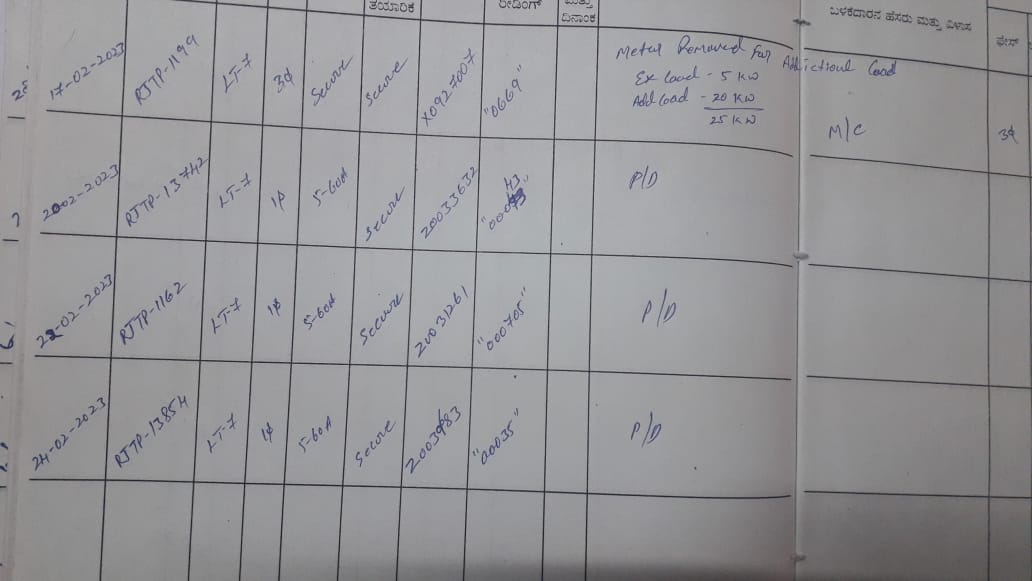 ತಯಾರಿಕೆ ರೀಡಿಂಗ್ ಮತ್ತು
ದಿನಾಂಕ ಬಳಕೆದಾರನ ಹೆಸರು ಮತ್ತು ವಿಳಾಸ ಫೇಸ್
17-02-2023 RJTP-1199 LT-7 3ϕ Secure Secure X0927007 "0669" Meter Removed for Additional Load
Ex Load - 5 KW
Add Load - 20 KW
25 KW
M/C 3ϕ
20-02-2023 RJTP-13742 LT-7 1ϕ 5-60A Secure 20033632 P/D
22-02-2023 RJTP-1162 LT-7 1ϕ 5-60A Secure 20031261 "000705" P/D
24-02-2023 RJTP-13854 LT-7 1ϕ 5-60A Secure "00035" P/D